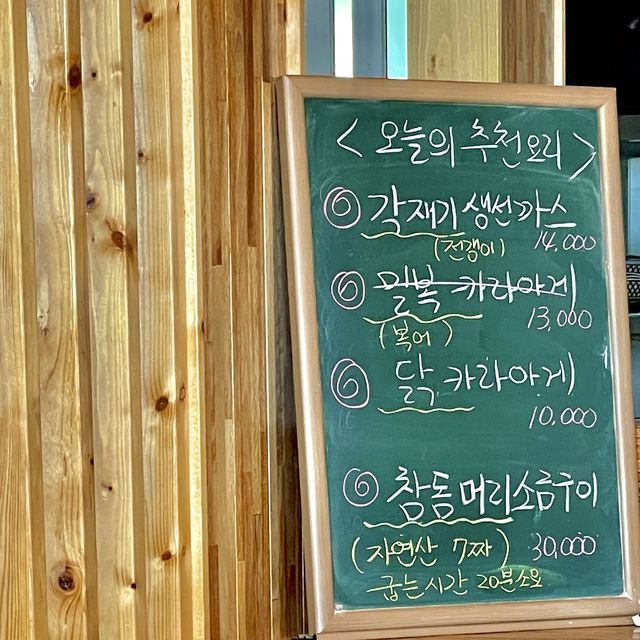 < 오늘의 추천요리 >
각재기 생선까스
(전갱이) 14,000
밀복 카라아게
(복어) 13,000
닭 카라아게
10,000
참돔머리소금구이
(자연산 7짜) 30,000
굽는시간 20분소요